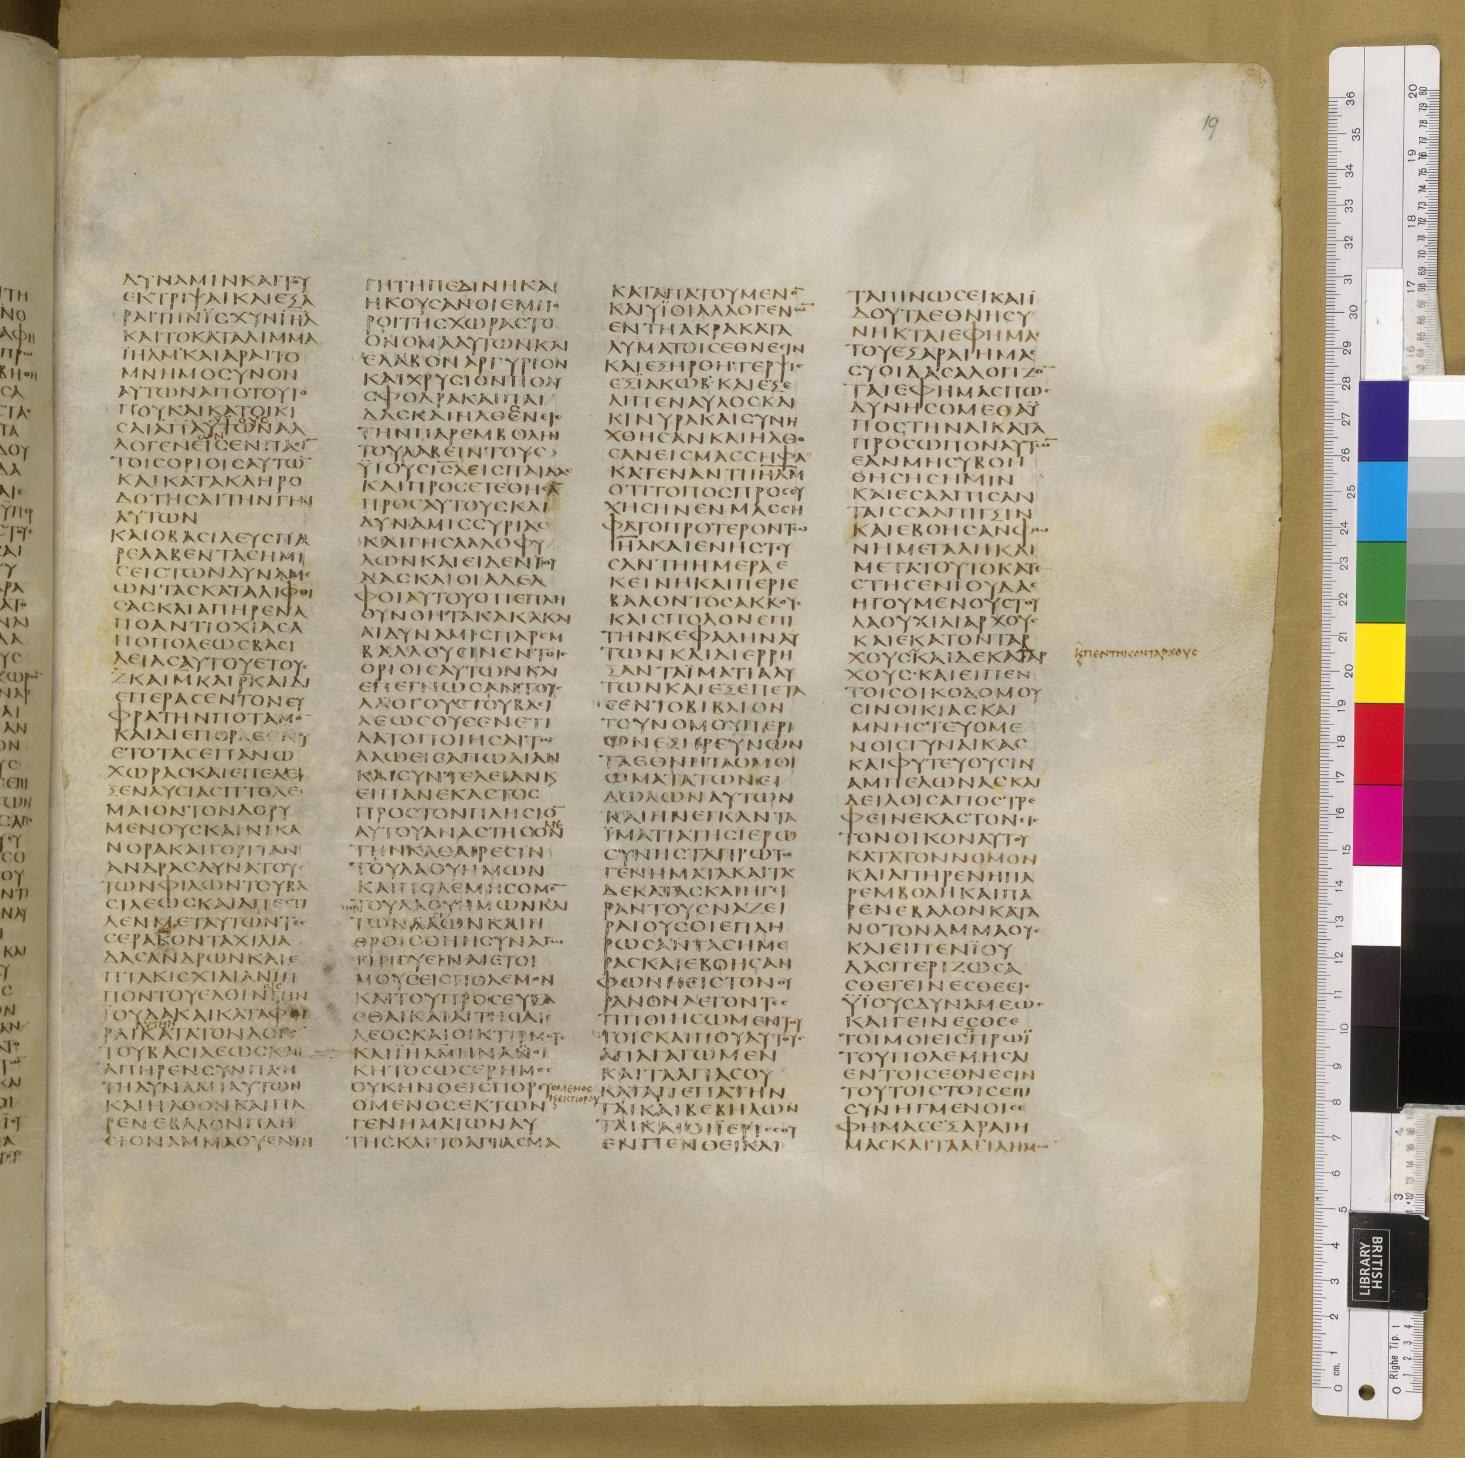 ΔΥΝΑΜΙΝΚΑΙΤΟΥ
ΕΚΤΡΙΨΑΙΚΑΙΕΞΑ
ΡΑΙΤΗΝΪΣΧΥΝΙΗΛ
ΚΑΙΤΟΚΑΤΑΛΙΜΜΑ
ΪΗΛΜΚΑΙΑΡΑΙΤΟ
ΜΝΗΜΟΣΥΝΟΝ
ΑΥΤΩΝΑΠΟΤΟΥΤΟ
ΠΟΥΚΑΙΚΑΤΟΙΚΙ
ΛΟΓΕΝΕΙΣΕΝΠΑΣΙ
ΤΟΙΣΟΡΙΟΙΣΑΥΤΩ
ΚΑΙΚΑΤΑΚΛΗΡΟ
ΔΟΤΗΣΑΙΤΗΝΓΗΝ
ΑΥΤΩΝ
ΚΑΙΟΒΑΣΙΛΕΥΣΠΑ
ΡΕΛΑΒΕΝΤΑΣΗΜΙ
ΣΕΙΣΤΩΝΔΥΝΑΜΕ
ΩΝΤΑΣΚΑΤΑΛΙΦΘΙ
ΣΑΣΚΑΙΑΠΗΡΕΝΑ
ΠΟΑΝΤΙΟΧΙΑΣΑ
ΠΟΠΟΛΕΩΣΒΑΣΙ
ΛΕΙΑΣΑΥΤΟΥΕΤΟΥΣ
ΖΚΑΙΜΚΑΙΡΚΑΙΔΙ
ΕΠΕΡΑΣΕΝΤΟΝΕΥ
ΦΡΑΤΗΝΠΟΤΑΜΟ
ΚΑΙΔΙΕΠΟΡΕΥΕΤΟ
ΧΩΡΑΣΚΑΙΕΠΕΛΕ
ΞΕΝΛΥΣΙΑΣΠΤΟΛΕ
ΜΑΙΟΝΤΟΝΔΟΡΥ
ΜΕΝΟΥΣΚΑΙΝΙΚΑ
ΝΟΡΑΚΑΙΓΟΡΓΙΑΝ
ΑΝΔΡΑΣΔΥΝΑΤΟΥΣ
ΤΩΝΦΙΛΩΝΤΟΥΒΑ
ΣΙΛΕΩΣΚΑΙΑΠΕΣΤΙ
ΛΕΝΜΕΤΑΥΤΩΝΤΕΣ
ΣΕΡΑΚΟΝΤΑΧΙΛΙΑ
ΔΑΣΑΝΔΡΩΝΚΑΙΕ
ΠΤΑΚΙΣΧΙΛΙΑΝΙΠ
ΠΟΝΤΟΥΕΛΘΙΝΓΗΝ
ΙΟΥΔΑΚΑΙΚΑΤΑΦΘΙ
ΡΑΙΚΑΤΑΤΟΝΛΟΓΟ
ΤΟΥΒΑΣΙΛΕΩΣΚΑΙ
ΑΠΗΡΕΝΣΥΝΠΑΣΗ
ΤΗΔΥΝΑΜΙΑΥΤΩΝ
ΚΑΙΗΛΘΟΝΚΑΙΠΑ
ΡΕΝΕΒΑΛΟΝΠΛΗ
ΣΙΟΝΑΜΜΑΟΥΕΝΤΗ
ΓΗΤΗΠΕΔΙΝΗΚΑΙ
ΗΚΟΥΣΑΝΟΙΕΜΠΟ
ΡΟΙΤΗΣΧΩΡΑΣΤΟ
ΟΝΟΜΑΑΥΤΩΝΚΑΙ
ΕΛΑΒΟΝΑΡΓΥΡΙΟΝ
ΚΑΙΧΡΥΣΙΟΝΠΟΛΥ
ΣΦΟΔΡΑΚΑΙΠΑΙ
ΔΑΣΚΑΙΗΛΘΕΝΕΙΣ
ΤΗΝΠΑΡΕΜΒΟΛΗΝ
ΤΟΥΛΑΒΕΙΝΤΟΥΣ
ΥΪΟΥΣΙΣΛΕΙΣΠΑΙΔΑΣ
ΚΑΙΠΡΟΣΕΤΕΘΗΣΑ
ΠΡΟΣΑΥΤΟΥΣΚΑΙ
ΔΥΝΑΜΙΣΣΥΡΙΑΣ
ΚΑΙΓΗΣΑΛΛΟΦΥ
ΛΩΝΚΑΙΕΙΔΕΝΪΟΥ
ΔΑΣΚΑΙΟΙΑΔΕΛ
ΦΟΙΑΥΤΟΥΟΤΙΕΠΛΗ
ΘΥΝΘΗΤΑΚΑΚΑΚΑΙ
ΑΙΔΥΝΑΜΙΣΠΑΡΕΜ
ΒΑΛΛΟΥΣΙΝΕΝΤΟΙΣ
ΟΡΙΟΙΣΑΥΤΩΝΚΑΙ
ΕΠΕΓΝΩΣΑΝΤΟΥΣ
ΛΟΓΟΥΣΤΟΥΒΑΣΙ
ΛΕΩΣΟΥΣΕΝΕΤΙ
ΛΑΤΟΠΟΙΗΣΑΙΤΩ
ΛΑΩΕΙΣΑΠΩΛΙΑΝ
ΚΑΙΣΥΝΤΕΛΕΙΑΝΚ
ΕΙΠΑΝΕΚΑΣΤΟΣ
ΠΡΟΣΤΟΝΠΛΗΣΙΟ
ΑΥΤΟΥΑΝΑΣΤΗΣΟΝ
ΤΗΝΚΑΘΑΙΡΕΣΙΝ
ΤΟΥΛΑΟΥΗΜΩΝ
ΚΑΙΠΟΛΕΜΗΣΟΜΕ
ΤΟΥΛΑΟΥΗΜΩΝΚΑΙ
ΤΩΝΑΓΙΩΝΚΑΙΗ
ΘΡΟΙΣΘΗΗΣΥΝΑΓΩ
ΓΗΤΟΥΕΙΝΑΙΕΤΟΙ
ΜΟΥΣΕΙΣΠΟΛΕΜΟΝ
ΚΑΙΤΟΥΠΡΟΣΕΥΞΑ
ΣΘΑΙΚΑΙΑΙΤΗΣΑΙΕ
ΛΕΟΣΚΑΙΟΙΚΤΙΡΜΟΥΣ
ΚΑΙΪΗΛΜΗΝΑΟΙ
ΚΗΤΟΣΩΣΕΡΗΜΟΣ
ΟΥΚΗΝΟΕΙΣΠΟΡΕΥ
ΟΜΕΝΟΣ
ΚΕΚΠΟΡΕΥ
ΟΜΕΝΟΣΕΚΤΩΝ
ΓΕΝΗΜΑΤΩΝΑΥ
ΤΗΣΚΑΙΤΟΑΓΙΑΣΜΑ
ΚΑΤΑΠΑΤΟΥΜΕΝΟ
ΚΑΙΥΪΟΙΑΛΛΟΓΕΝΩ
ΕΝΤΗΑΚΡΑΚΑΤΑ
ΛΥΜΑΤΟΙΣΕΘΝΕΣΙΝ
ΚΑΙΕΞΗΡΘΗΤΕΡΨΙΣ
ΕΞΪΑΚΩΒΚΑΙΕΞΕ
ΛΙΠΕΝΑΥΛΟΣΚΑΙ
ΚΙΝΥΡΑΚΑΙΣΥΝΗ
ΧΘΗΣΑΝΚΑΙΗΛΘΟ
ΣΑΝΕΙΣΜΑΣΣΗΦΑ
ΚΑΤΕΝΑΝΤΙΙΗΛΜ
ΟΤΙΤΟΠΟΣΠΡΟΣΕΥ
ΧΗΣΗΝΕΝΜΑΣΣΗ
ΦΑΤΟΠΡΟΤΕΡΟΝΤΩ
ΙΗΛΚΑΙΕΝΗΣΤΕΥ
ΣΑΝΤΗΗΜΕΡΑΕ
ΚΕΙΝΗΚΑΙΠΕΡΙΕ
ΒΑΛΟΝΤΟΣΑΚΚΟΥΣ
ΚΑΙΣΠΟΔΟΝΕΠΙ
ΤΗΝΚΕΦΑΛΗΝΑΥ
ΤΩΝΚΑΙΔΙΕΡΡΗ
ΞΑΝΤΑΪΜΑΤΙΑΑΥ
ΤΩΝΚΑΙΕΞΕΠΕΤΑ
ΣΕΝΤΟΒΙΒΛΙΟΝ
ΤΟΥΝΟΜΟΥΠΕΡΙ
ΩΝΕΞΗΡΕΥΝΩΝ
ΤΑΕΘΝΗΤΑΟΜΟΙ
ΩΜΑΤΑΤΩΝΕΙ
ΔΩΛΩΝΑΥΤΩΝ
ΚΑΙΗΝΕΓΚΑΝΤΑ
ΪΜΑΤΙΑΤΗΣΪΕΡΩ
ΣΥΝΗΣΤΑΠΡΩΤΟ
ΓΕΝΗΜΑΤΑΚΑΙΤΑΣ
ΔΕΚΑΤΑΣΚΑΙΗΓΙ
ΡΑΝΤΟΥΣΝΑΖΕΙ
ΡΑΙΟΥΣΟΙΕΠΛΗ
ΡΩΣΑΝΤΑΣΗΜΕ
ΡΑΣΚΑΙΕΒΟΗΣΑΝ
ΦΩΝΗΕΙΣΤΟΝΟΥ
ΡΑΝΟΝΛΕΓΟΝΤΕΣ
ΤΙΠΟΙΗΣΩΜΕΝΤΟΥ
ΤΟΙΣΚΑΙΠΟΥΑΥΤΟΥΣ
ΑΠΑΓΑΓΩΜΕΝ
ΚΑΙΤΑΑΓΙΑΣΟΥ
ΚΑΤΑΠΕΠΑΤΗΝ
ΤΑΙΚΑΙΒΕΒΗΛΩΝ
ΤΑΙΚΑΙΟΙΙΕΡΙΣΣΟΥ
ΕΝΠΕΝΘΕΙΚΑΙ
ΤΑΠΙΝΩΣΕΙΚΑΙΪ
ΔΟΥΤΑΕΘΝΗΣΥ
ΝΗΚΤΑΙΕΦΗΜΑΣ
ΤΟΥΕΞΑΡΑΙΗΜΑΣ
ΣΥΟΙΔΑΣΑΛΟΓΙΖΟ
ΤΑΙΕΦΗΜΑΣΠΩΣ
ΔΥΝΗΣΟΜΕΘΑΫ
ΠΟΣΤΗΝΑΙΚΑΤΑ
ΠΡΟΣΩΠΟΝΑΥΤΩ
ΕΑΝΜΗΣΥΒΟΗ
ΘΗΣΗΣΗΜΙΝ
ΚΑΙΕΣΑΛΠΙΣΑΝ
ΤΑΙΣΣΑΛΠΙΓΞΙΝ
ΚΑΙΕΒΟΗΣΑΝΦΩ
ΝΗΜΕΓΑΛΗΚΑΙ
ΜΕΤΑΤΟΥΤΟΚΑΤΕ
ΣΤΗΣΕΝΙΟΥΔΑΣ
ΗΓΟΥΜΕΝΟΥΣΤΟΥ
ΛΑΟΥΧΙΛΙΑΡΧΟΥΣ
ΚΑΙΕΚΑΤΟΝΤΑΡ
ΧΟΥΣΚΑΙΔΕΚΑΤΑΡ
ΚΠΕΝΤΗΚΟΝΤΑΡΧΟΥΣ
ΧΟΥΣΚΑΙΕΙΠΕΝ
ΤΟΙΣΟΙΚΟΔΟΜΟΥ
ΣΙΝΟΙΚΙΑΣΚΑΙ
ΜΝΗΣΤΕΥΟΜΕ
ΝΟΙΣΓΥΝΑΙΚΑΣ
ΚΑΙΦΥΤΕΥΟΥΣΙΝ
ΑΜΠΕΛΩΝΑΣΚΑΙ
ΔΕΙΛΟΙΣΑΠΟΣΤΡΕ
ΦΕΙΝΕΚΑΣΤΟΝΕΙΣ
ΤΟΝΟΙΚΟΝΑΥΤΟΥ
ΚΑΤΑΤΟΝΝΟΜΟΝ
ΚΑΙΑΠΗΡΕΝΗΠΑ
ΡΕΜΒΟΛΗΚΑΙΠΑ
ΡΕΝΕΒΑΛΟΝΚΑΤΑ
ΝΟΤΟΝΑΜΜΑΟΥΣ
ΚΑΙΕΙΠΕΝΪΟΥ
ΔΑΣΠΕΡΙΖΩΣΑ
ΣΘΕΓΕΙΝΕΣΘΕΕΙΣ
ΫΪΟΥΣΔΥΝΑΜΕΩΣ
ΚΑΙΓΕΙΝΕΣΘΕΕ
ΤΟΙΜΟΙΕΙΣΠΡΩΪ
ΤΟΥΠΟΛΕΜΗΣΑΙ
ΕΝΤΟΙΣΕΘΝΕΣΙΝ
ΤΟΥΤΟΙΣΤΟΙΣΕΠΙ
ΣΥΝΗΓΜΕΝΟΙΣΕ
ΦΗΜΑΣΕΞΑΡΑΙΗ
ΜΑΣΚΑΙΤΑΑΓΙΑΗΜΩ
19
BRITISH
LIBRARY